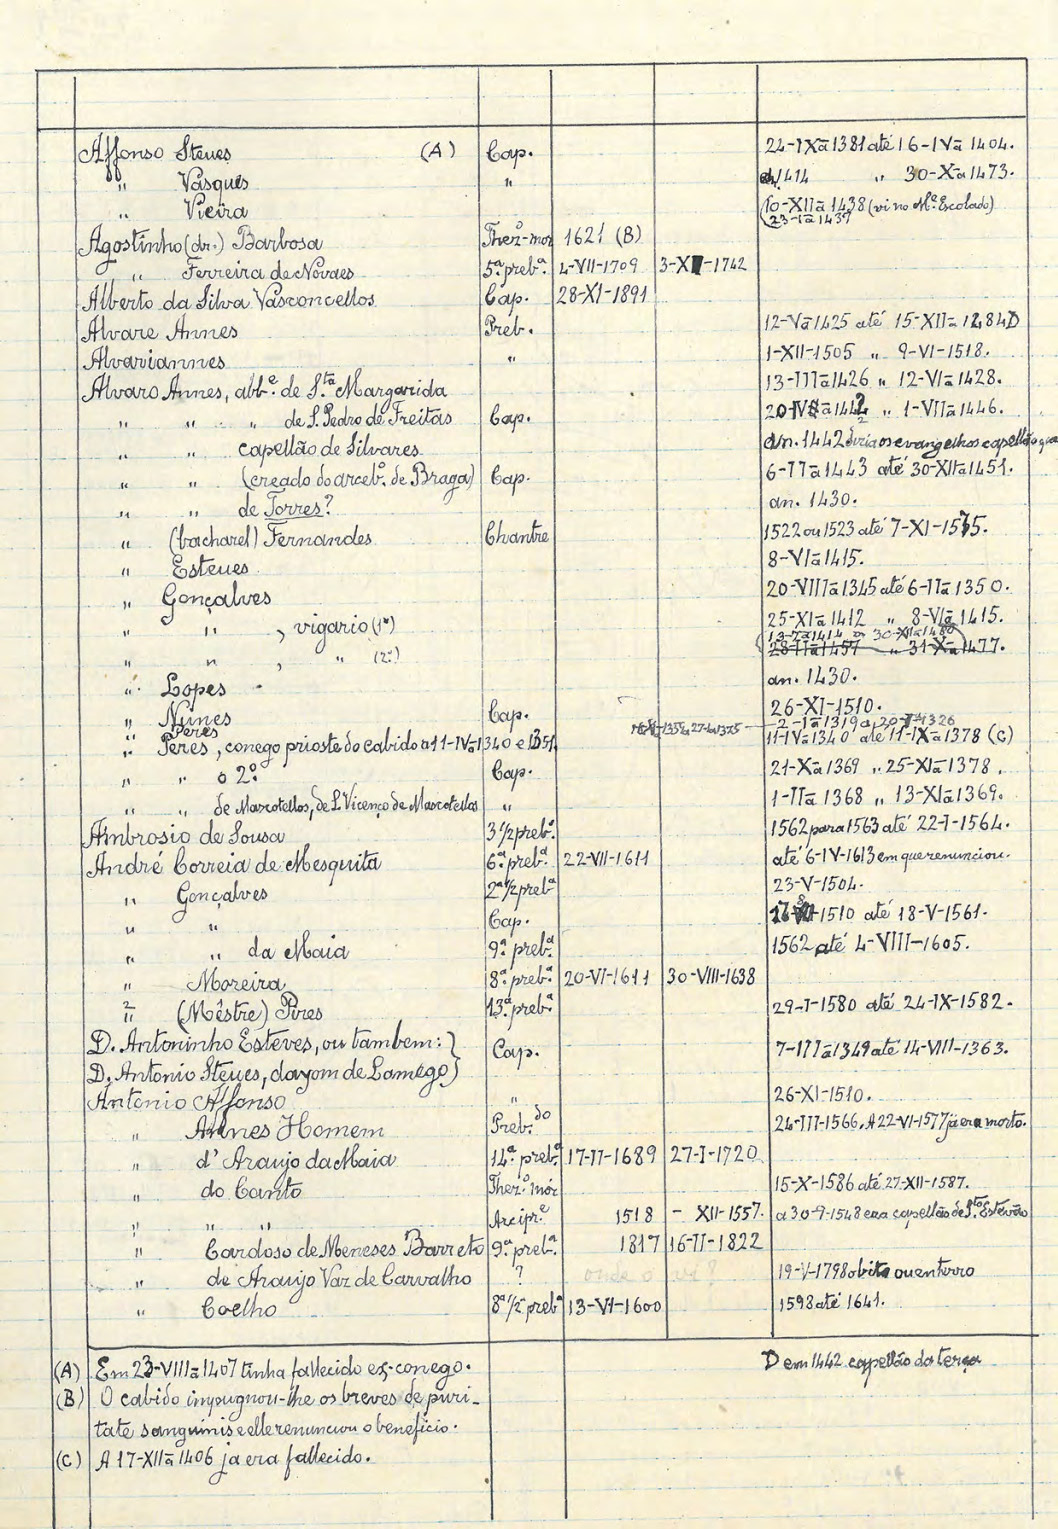 Affonso Steves (A) Cap. 24-IXā1381 até 16-IVā 1404.
" Vasques " 1414 " 30-Xā1473.
" Vieira 10-XIIā1438 (vi no Mº Escolado)
23-Iā1437
Agostinho (dr.) Barbosa Thezº-mor 1621 (B)
" Ferreira de Novaes 5ª prebª. 4-VII-1709 3-X -1742
Alberto da Silva Vasconcellos Cap. 28-XI-1891
Alvare Annes Preb. 12-Vā1425 até 15-XIIā 1484D
Alvariannes " 1-XII-1505 " 9-VI-1518.
Alvaro Annes, abbe. de S.ta Margarida 13-IIIā1426 " 12-VIā1428.
" " " de S. Pedro de Freitas Cap. 20-IV ā1442 " 1-VIIā1446.
" " capellão de Silvares an. 1442 dizia os evangelhos capellão
" " (creado do arcebº. de Braga) Cap. 6-IIā1443 até 30-XIIā1451.
" " de Torres? an. 1430.
" (bacharel) Fernandes Chantre 1522 ou 1523 até 7-XI-1575.
" Esteues 8-VIā1415.
" Gonçalves 20-VIIIā1345 até 6-IIā1350.
" " , vigario (1º) 25-XIā1412 " 8-VIā1415.
13-Iā1414 a 30-XIIā1450
" " , " (2º) 28-IIā1457 " 31-Xā1477.
" Lopes an. 1430.
" Nunes Cap. 26-XI-1510.
" Peres 2-Iā1319 a 20- 1326
" Peres, conego prioste do cabido a 11-IV-1340 e 1351. 11-IVā1340 até 11-IXā1378 (C)
" " o 2º. Cap. 21-Xā1369 " 25-XIā1378.
" " de Mascotellos, de S. Vicenço de Mascotellos " 1-IIā1368 " 13-XIā1369.
Ambrosio de Sousa 3 1/2 prebª. 1562 para 1563 até 22-I-1564.
André Correia de Mesquita 6ª. prebª. 22-VII-1611 até 6-IV-1613 em que renunciou.
" Gonçalves 2ª 1/2 prebª 23-V-1504.
" " Cap. -1510 até 18-V-1561.
" " da Maia 9ª. prebª. 1562 até 4-VIII-1605.
" Moreira 8ª. prebª. 20-VI-1611 30-VIII-1638
" (Mêstre) Pires 13ª. prebª. 29-I-1580 até 24-IX-1582.
D. Antoninho Esteves, ou tambem: } Cap. 7-IIIā1349 até 14-VIII-1363.
D. Antonio Steues, dayom de Lamego }
Antonio Affonso " 26-XI-1510.
" Annes Homem Preb.do 24-III-1566. A 22-VI-1577 ja era morto.
" d' Araujo da Maia 14ª. prebª. 17-II-1689 27-I-1720
" do Canto Thezº mór 15-X-1586 até 27-XII-1587.
" " " Arcipre 1518 - XII-1557. a 30-9-1548 era capellão de S.to Estevão
" Cardoso de Meneses Barreto 9ª. prebª. 1817 16-II-1822
" de Araujo Vaz de Carvalho ? onde o vi? 19-V-1798 obito ou enterro
" Coelho 8ª 1/2 prebª 13-VI-1600 1598 até 1641.
(A) Em 23-VIIIā1407 tinha fallecido ex-conego. D em 1442 capellão da terça
(B) O cabido impugnou-lhe os breves de puri-
tate sanguinis e elle renunciou o beneficio.
(C) A 17-XIIā1406 ja era fallecido.